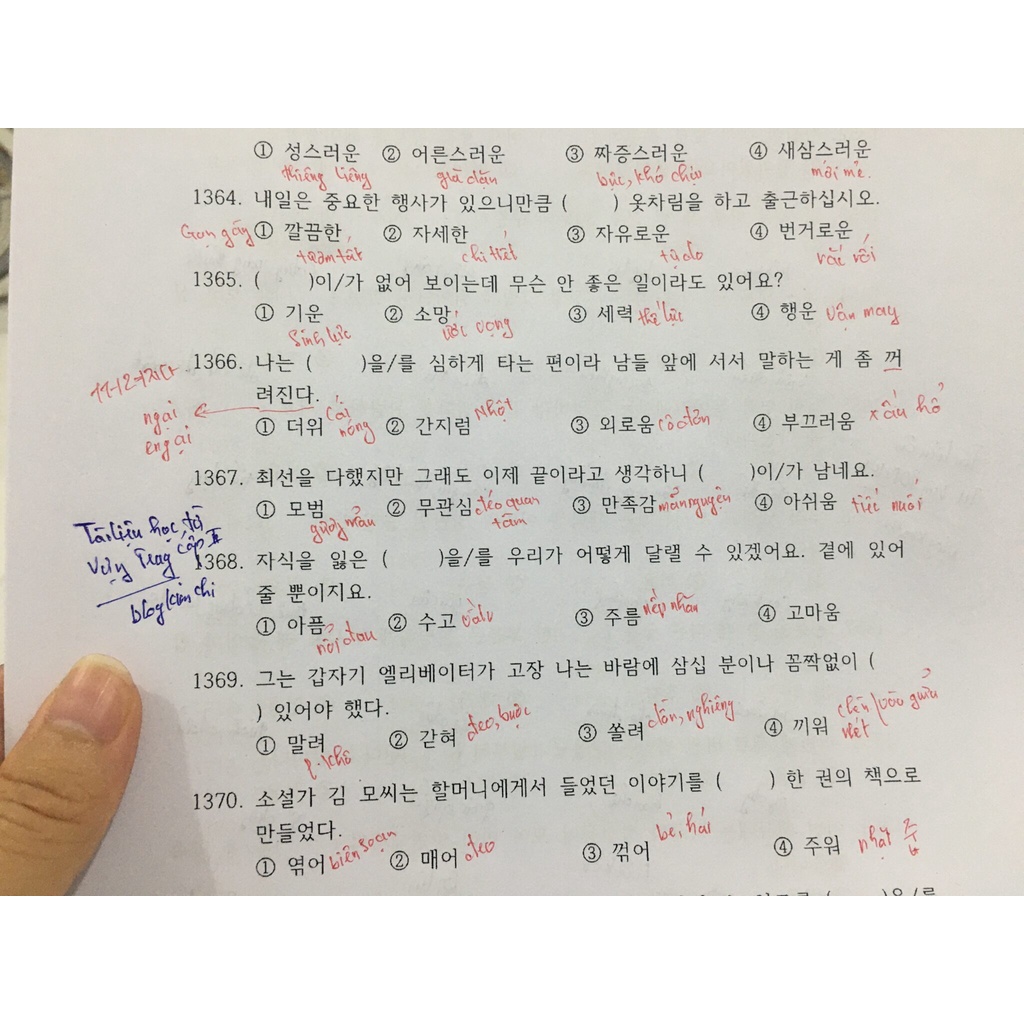 ① 성스러운 ② 어른스러운 ③ 짜증스러운 ④ 새삼스러운
thiêng liêng già dặn bực, khó chịu mới mẻ.
1364. 내일은 중요한 행사가 있으니만큼 ( ) 옷차림을 하고 출근하십시오.
Gọn gàng ① 깔끔한 ② 자세한 ③ 자유로운 ④ 번거로운
chi tiết tự do rắc rối
1365. ( )이/가 없어 보이는데 무슨 안 좋은 일이라도 있어요?
① 기운 ② 소망 ③ 세력 thế lực ④ 행운 vận may
Sinh lực ước vọng
1366. 나는 ( )을/를 심하게 타는 편이라 남들 앞에 서서 말하는 게 좀 꺼
려진다.
ngại
e ngại
① 더위 cái nóng ② 간지럼 Nhột ③ 외로움 cô đơn ④ 부끄러움 xấu hổ
1367. 최선을 다했지만 그래도 이제 끝이라고 생각하니 ( )이/가 남네요.
① 모범 ② 무관심 đéo quan tâm ③ 만족감 mãn nguyện ④ 아쉬움 tiếc nuối
gương mẫu
Tài liệu học từ
vựng Trung cấp II
blog kim chi
1368. 자식을 잃은 ( )을/를 우리가 어떻게 달랠 수 있겠어요. 곁에 있어
줄 뿐이지요.
① 아픔 ② 수고 ③ 주름 nếp nhăn ④ 고마움
nỗi đau
1369. 그는 갑자기 엘리베이터가 고장 나는 바람에 삼십 분이나 꼼짝없이 (
) 있어야 했다.
① 말려 ② 갇혀 đeo, buộc ③ 쏠려 dồn, nghiêng ④ 끼워
p. khô
1370. 소설가 김 모씨는 할머니에게서 들었던 이야기를 ( ) 한 권의 책으로
만들었다.
① 엮어 biên soạn ② 매어 đeo ③ 꺾어 bẻ, hái ④ 주워 nhặt 줍